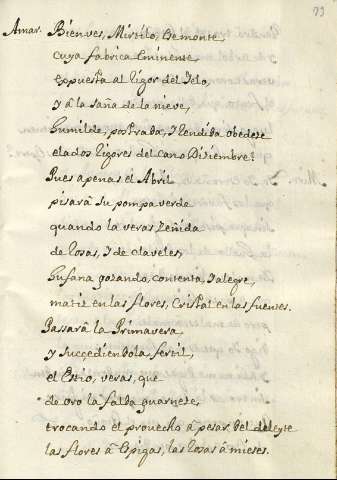 93
Amar. Bien ves, Mirtilo, esse monte,
cuya fabrica eminente
expuesta al rigor del Ielo,
y â la saña de la nieve,
humilde, postrada, y rendida obedeze
elados rigores del cano Diziembre?
Pues apenas el Abril
pisarâ su pompa verde
quando la veras zeñida
de rosas, y de claveles,
Gufana gozando, contenta y alegre,
matiz en las flores, Cristal en las fuentes.
Passarâ la Primavera
y succediendola, fertil,
el Estio, veras, que
de oro la falda guarneze,
trocando el provecho â pesar del deleyte
las flores â Espigas, las rosas â mieses.